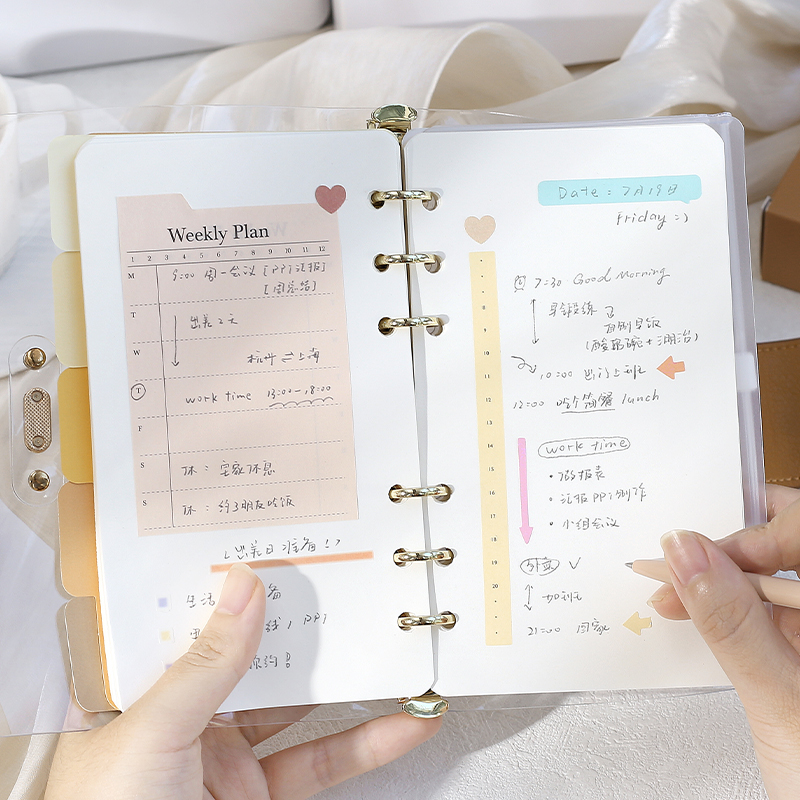 Weekly Plan
1 2 3 4 5 6 7 8 9 10 11 12
M 9:00 周一会议 [PPT汇报]
[周总结]
T 出差2天
W 杭州 ⇌ 上海
T work time 13:00-18:00
F
S 休: 宅家休息
S 休: 约了朋友吃饭
(出差日准备!)
生活 备
线 / PPT
预约!
Date: 7月19日
Friday =)
7:30 Good Morning
早起锻练
自制早饭
(酸奶碗+三明治)
10:00 出门上班
12:00 吃个简餐 lunch
work time
• 做报表
• 汇报PPT制作
• 小组会议
8
9
10
11
12
13
14
15
16
17
18
19
20
加班
21:00 回家